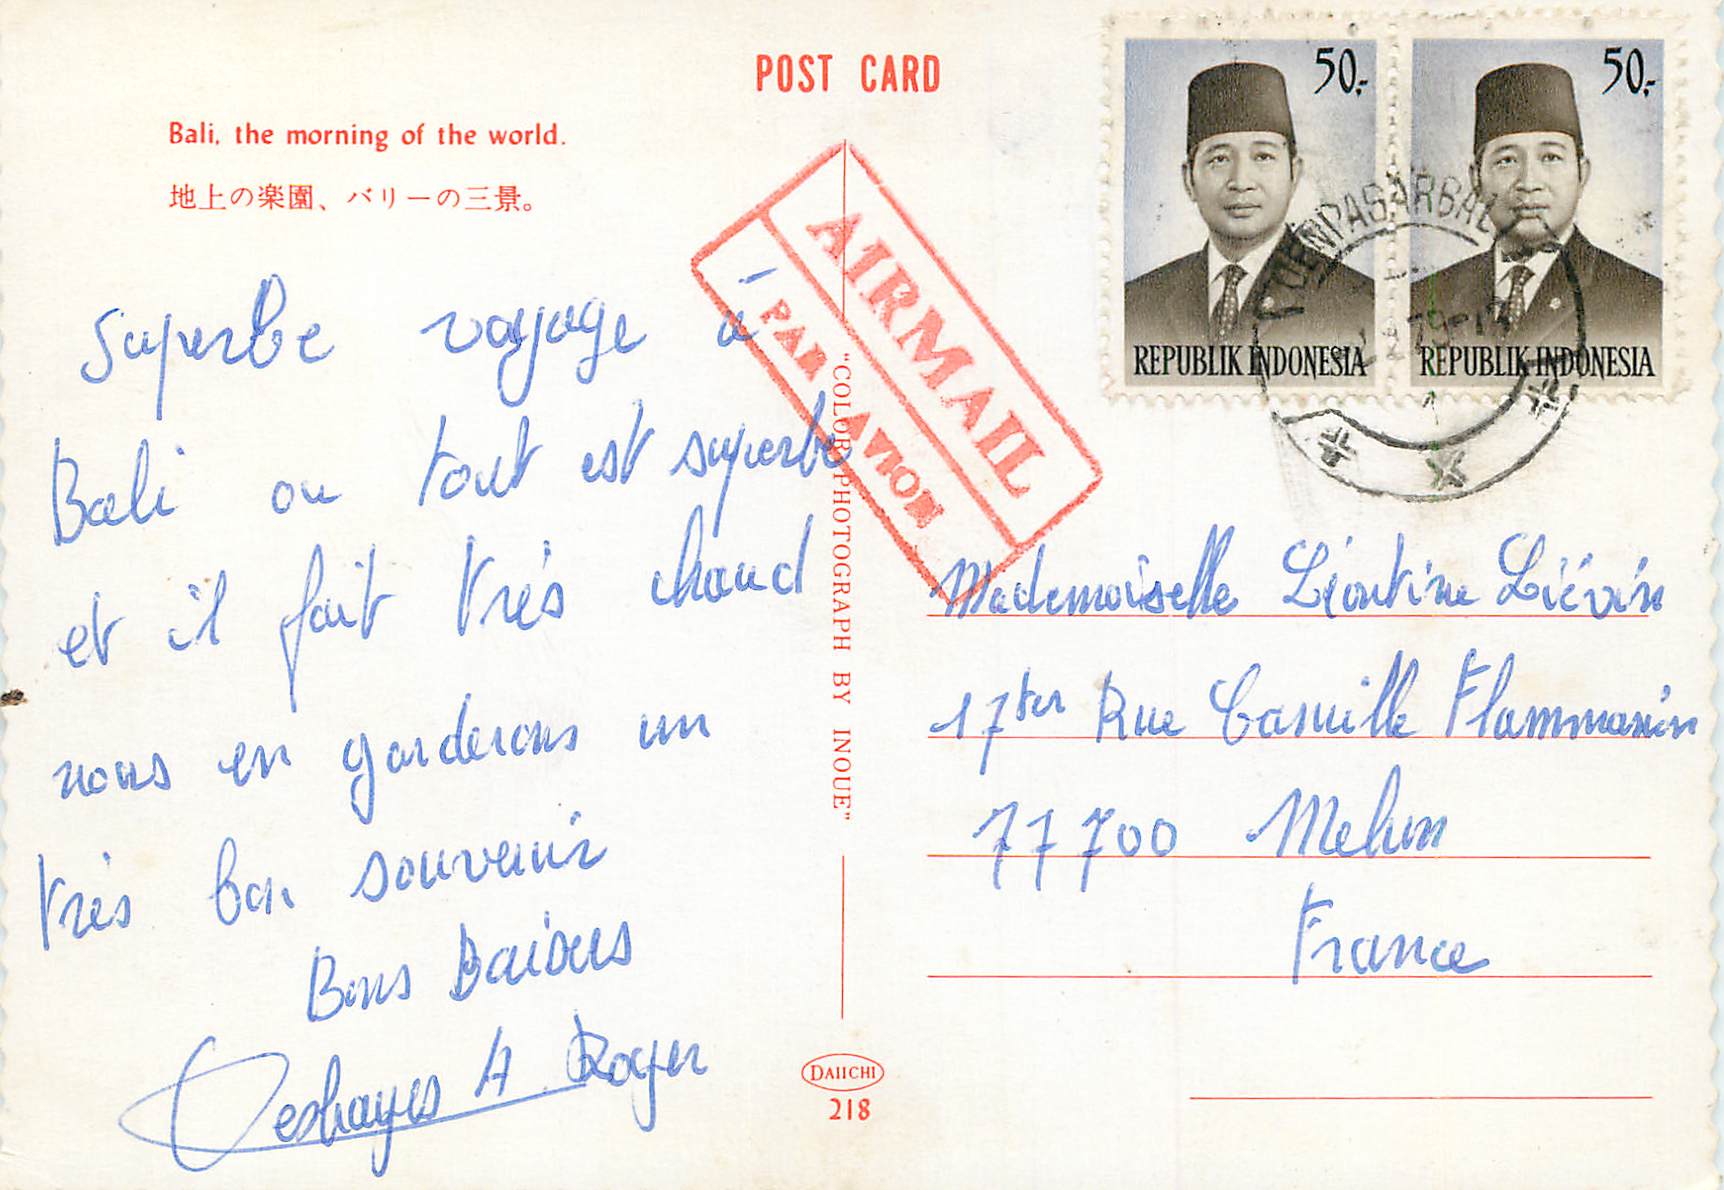 POST CARD
Bali, the morning of the world.
地上の楽園、バリーの三景。
Superbe voyage à
Bali ou tout est superbe
et il fait très chaud
nous en garderons un
très bon souvenir
Bons Baisers
Deshayes A Roger
AIRMAIL
PAR AVION
"COLOR PHOTOGRAPH BY INOUE"
DAIICHI
218
50,-
REPUBLIK INDONESIA
50,-
REPUBLIK INDONESIA
DENPASARBALI
Mademoiselle Léontine Liévin
17ter Rue Camille Flammarion
77700 Melun
France